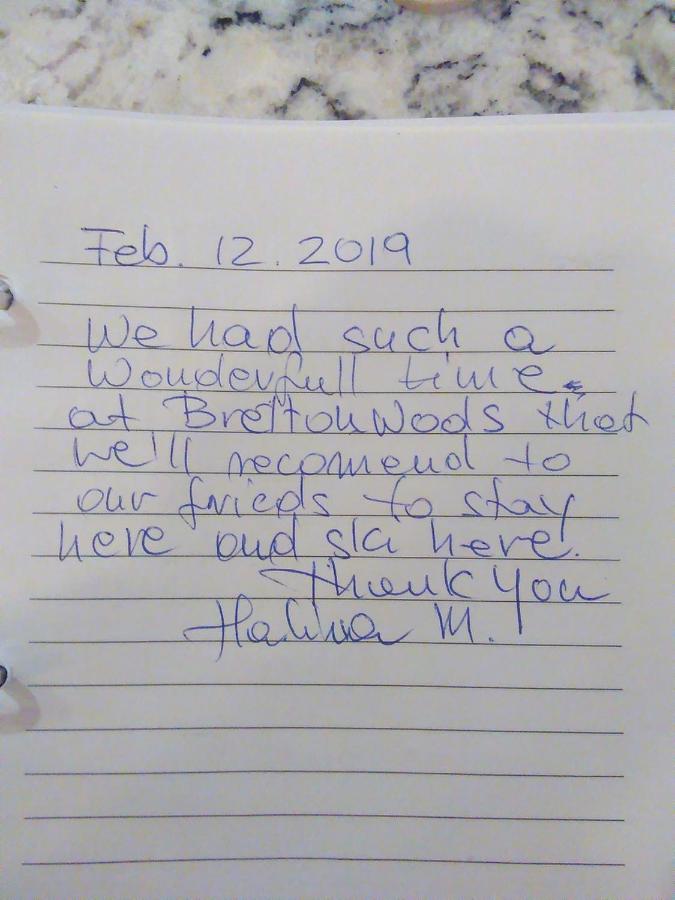 Feb. 12. 2019
We had such a
wonderfull time
at BrettonWoods that
we'll recomend to
our frieds to stay
here and ski here!
Thank you
Halina M.